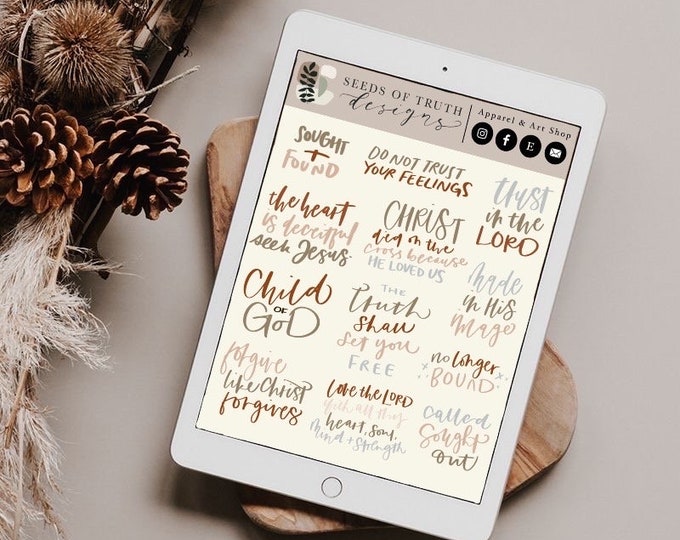 SEEDS OF TRUTH
designs
Apparel & Art Shop
SOUGHT
+
FOUND
DO NOT TRUST
YOUR FEELINGS
trust
in the
LORD
the heart
is deceitful
seek Jesus.
CHRIST
died on the
cross because
HE LOVED US
made
in His
Image
Child
OF
GOD
THE
truth
shall
set you
FREE
no longer
BOUND
forgive
like Christ
forgives
Love the LORD
with all thy
heart, soul,
mind + strength
called
sought
out